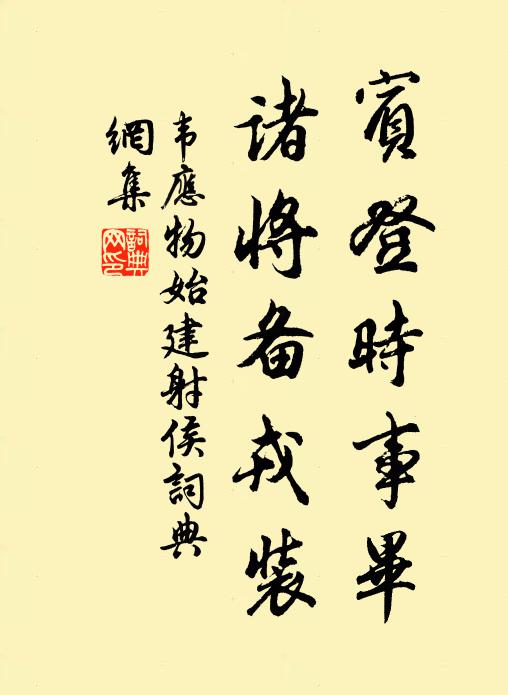 賓登時事畢
诸將备戎裝
韦應物始建射侯詞典
網集
詞典
网印